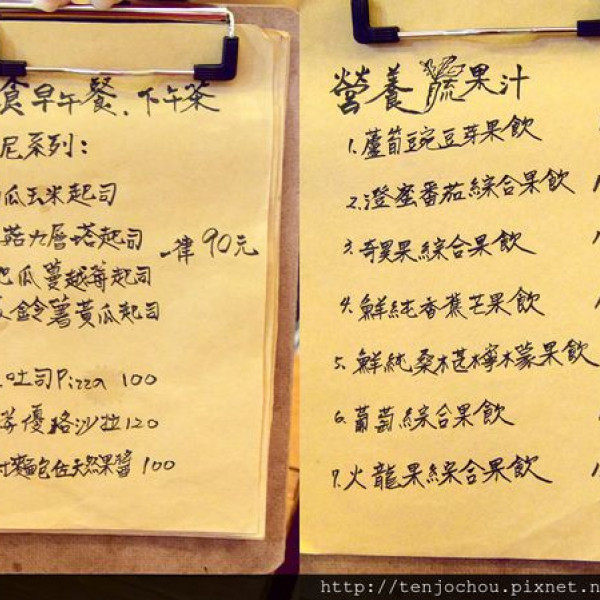 食早午餐、下午茶
尼系列:
瓜玉米起司
菇九層塔起司
一律 90元
巴瓜蔓越莓起司
鈴薯黃瓜起司
吐司Pizza 100
優格沙拉 120
麵包佐天然果醬 100
營養蔬果汁
1.蘆筍豌豆芽果飲
2.澄蜜番茄綜合果飲
3.奇異果綜合果飲
4.鮮純香蕉芒果飲
5.鮮純桑椹檸檬果飲
6.葡萄綜合果飲
7.火龍果綜合果飲
http://tenjochou.pixnet.n